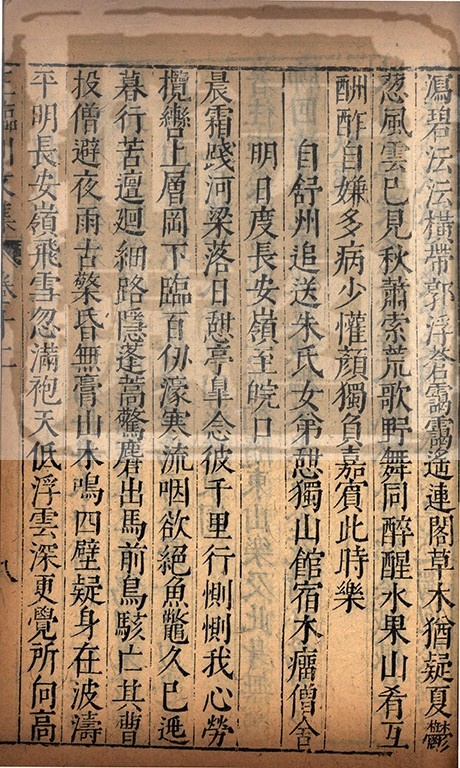 瀉碧沄沄橫帶郭浮蒼靄靄遙連閣草木猶疑夏鬱
葱風雲已見秋蕭索荒歌野舞同醉醒水果山肴互
酬酢自嫌多病少懽顏獨負嘉賓此時樂
自舒州追送朱氏女弟憩獨山館宿木瘤僧舍
明日度長安嶺至皖口
晨霜踐河梁落日憩亭臯念彼千里行惻惻我心勞
攬轡上層岡下臨百仞濠寒流咽欲絕魚鼈久已逃
暮行苦邅廻細路隱蓬蒿驚麏出馬前鳥駭亡其曹
投僧避夜雨古檠昏無膏山木鳴四壁疑身在波濤
平明長安嶺飛雪忽滿袍天低浮雲深更覺所向高
川文集 卷十二
八